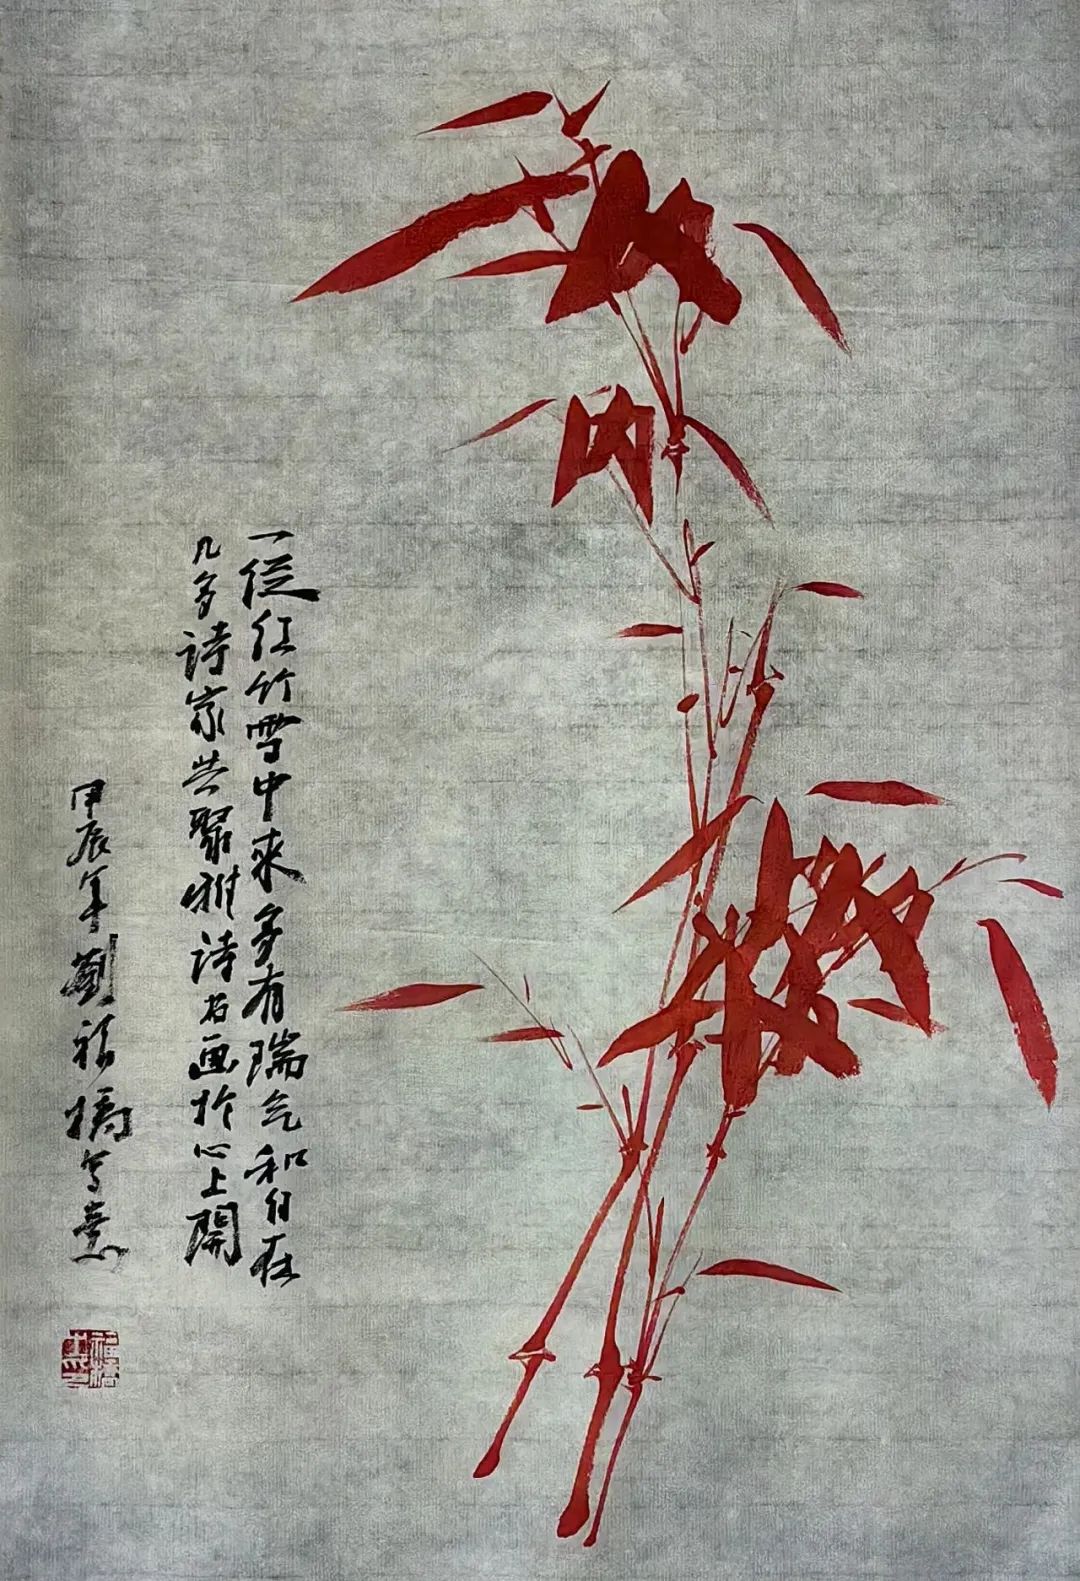 一从红竹雪中来多有瑞气和自在
几多诗家共聚雅诗名画於心上開
甲辰年劉福橋写意